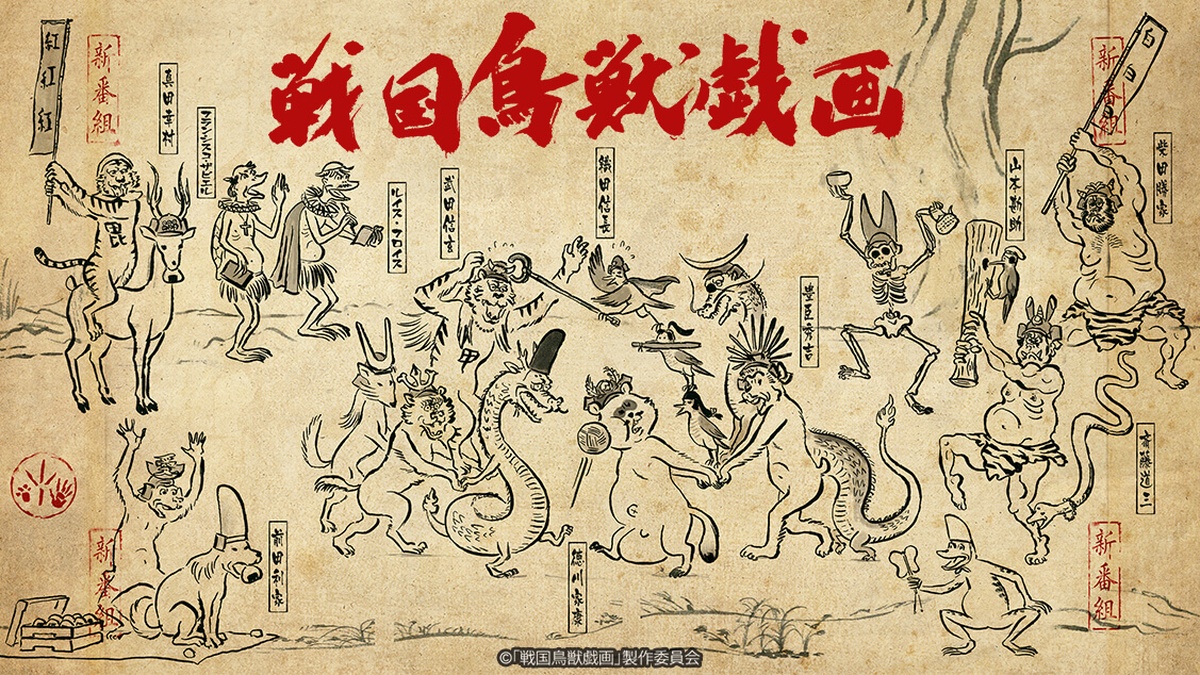 戦国鳥獣戯画
紅
紅
紅
新番組
真田幸村
フランシスコ・ザビエル
毘
ルイス・フロイス
武田信玄
織田信長
甲
豊臣秀吉
山本勘助
新番組
柴田勝家
斎藤道三
新番組
前田利家
徳川家康
新番組
©「戦国鳥獣戯画」製作委員会